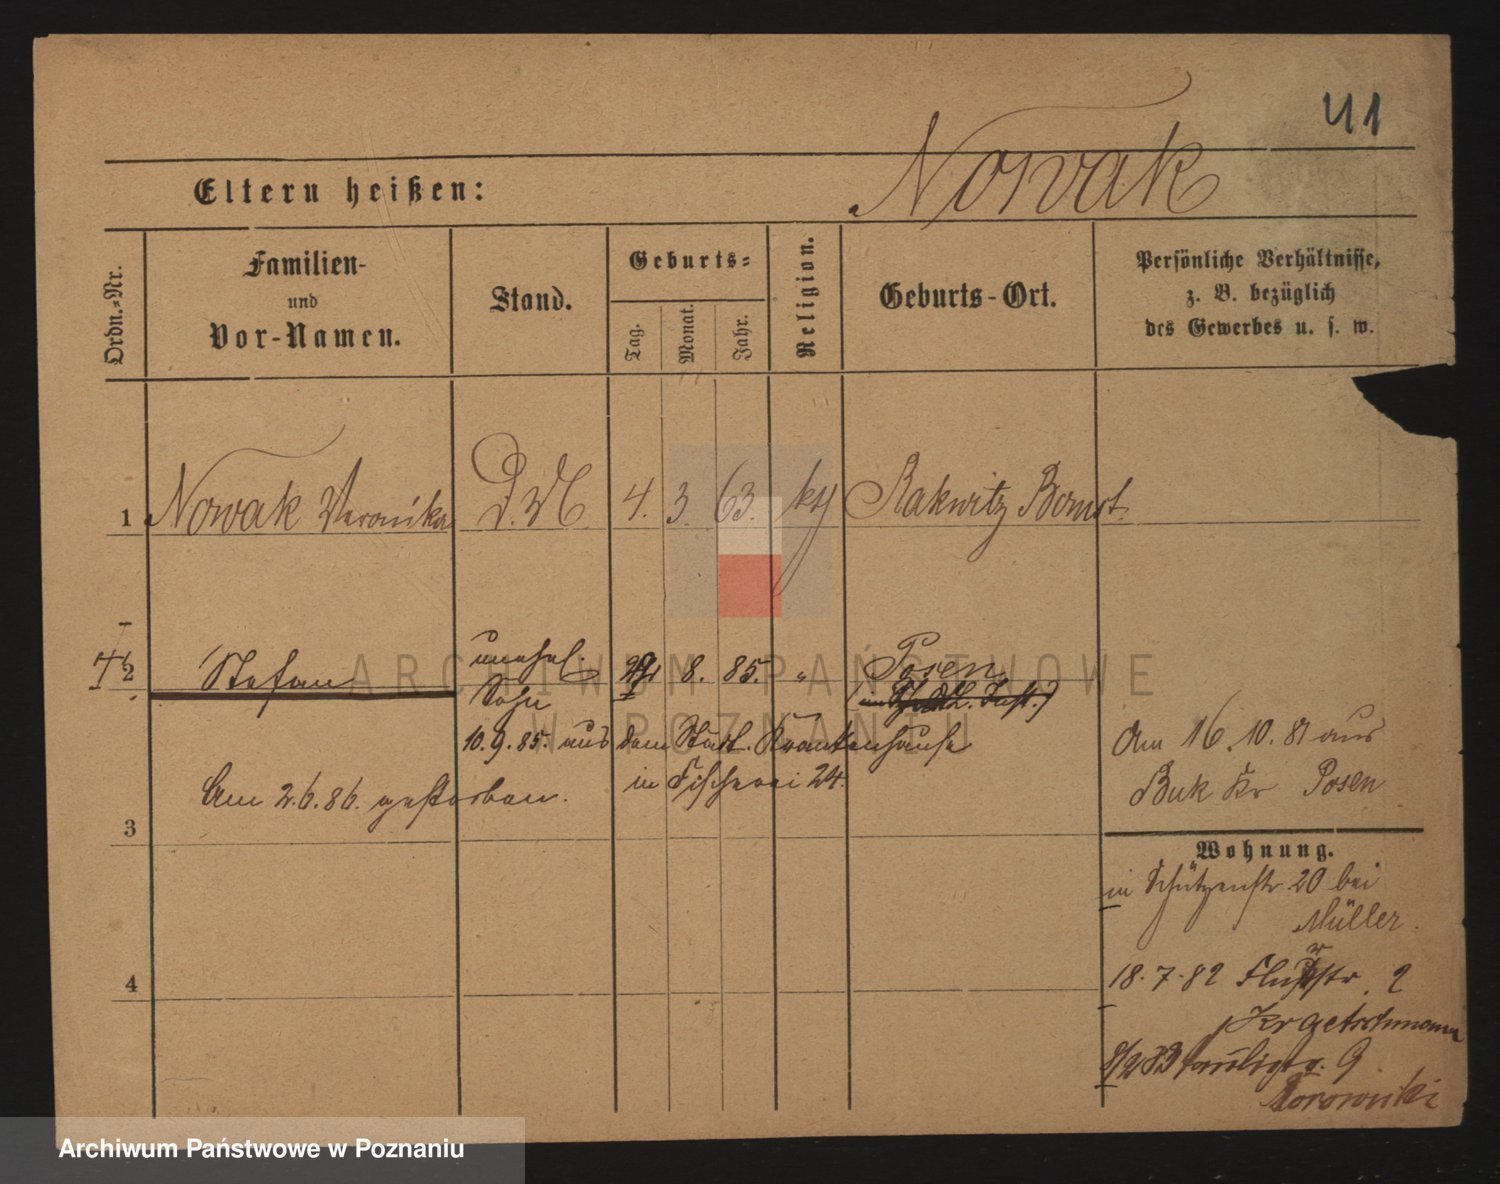 41
Nowak
Eltern heißen:
Ordn.-Nr.
Familien-
und
Vor-Namen.
Stand.
Geburts-
Tag.
Monat.
Jahr.
Religion.
Geburts-Ort.
Persönliche Verhältnisse,
z. B. bezüglich
des Gewerbes u. s. w.
1 Nowak Veronika D. M. 4. 3. 63. kth Rakwitz Bomst.
2 Stefan unehel. 8. 85. " Posen
Sohn
10.9.85. aus dem Stadt. Krankenhause
in Fischerei 24.
Am 2.6.86. gestorben.
3
4
Am 16.10.81 aus
Buk Kr Posen
Wohnung.
in Schützenstr. 20 bei
Müller.
18.7.82 2
8/2 83 9
ARCHIWUM PAŃSTWOWE
W POZNANIU
Archiwum Państwowe w Poznaniu